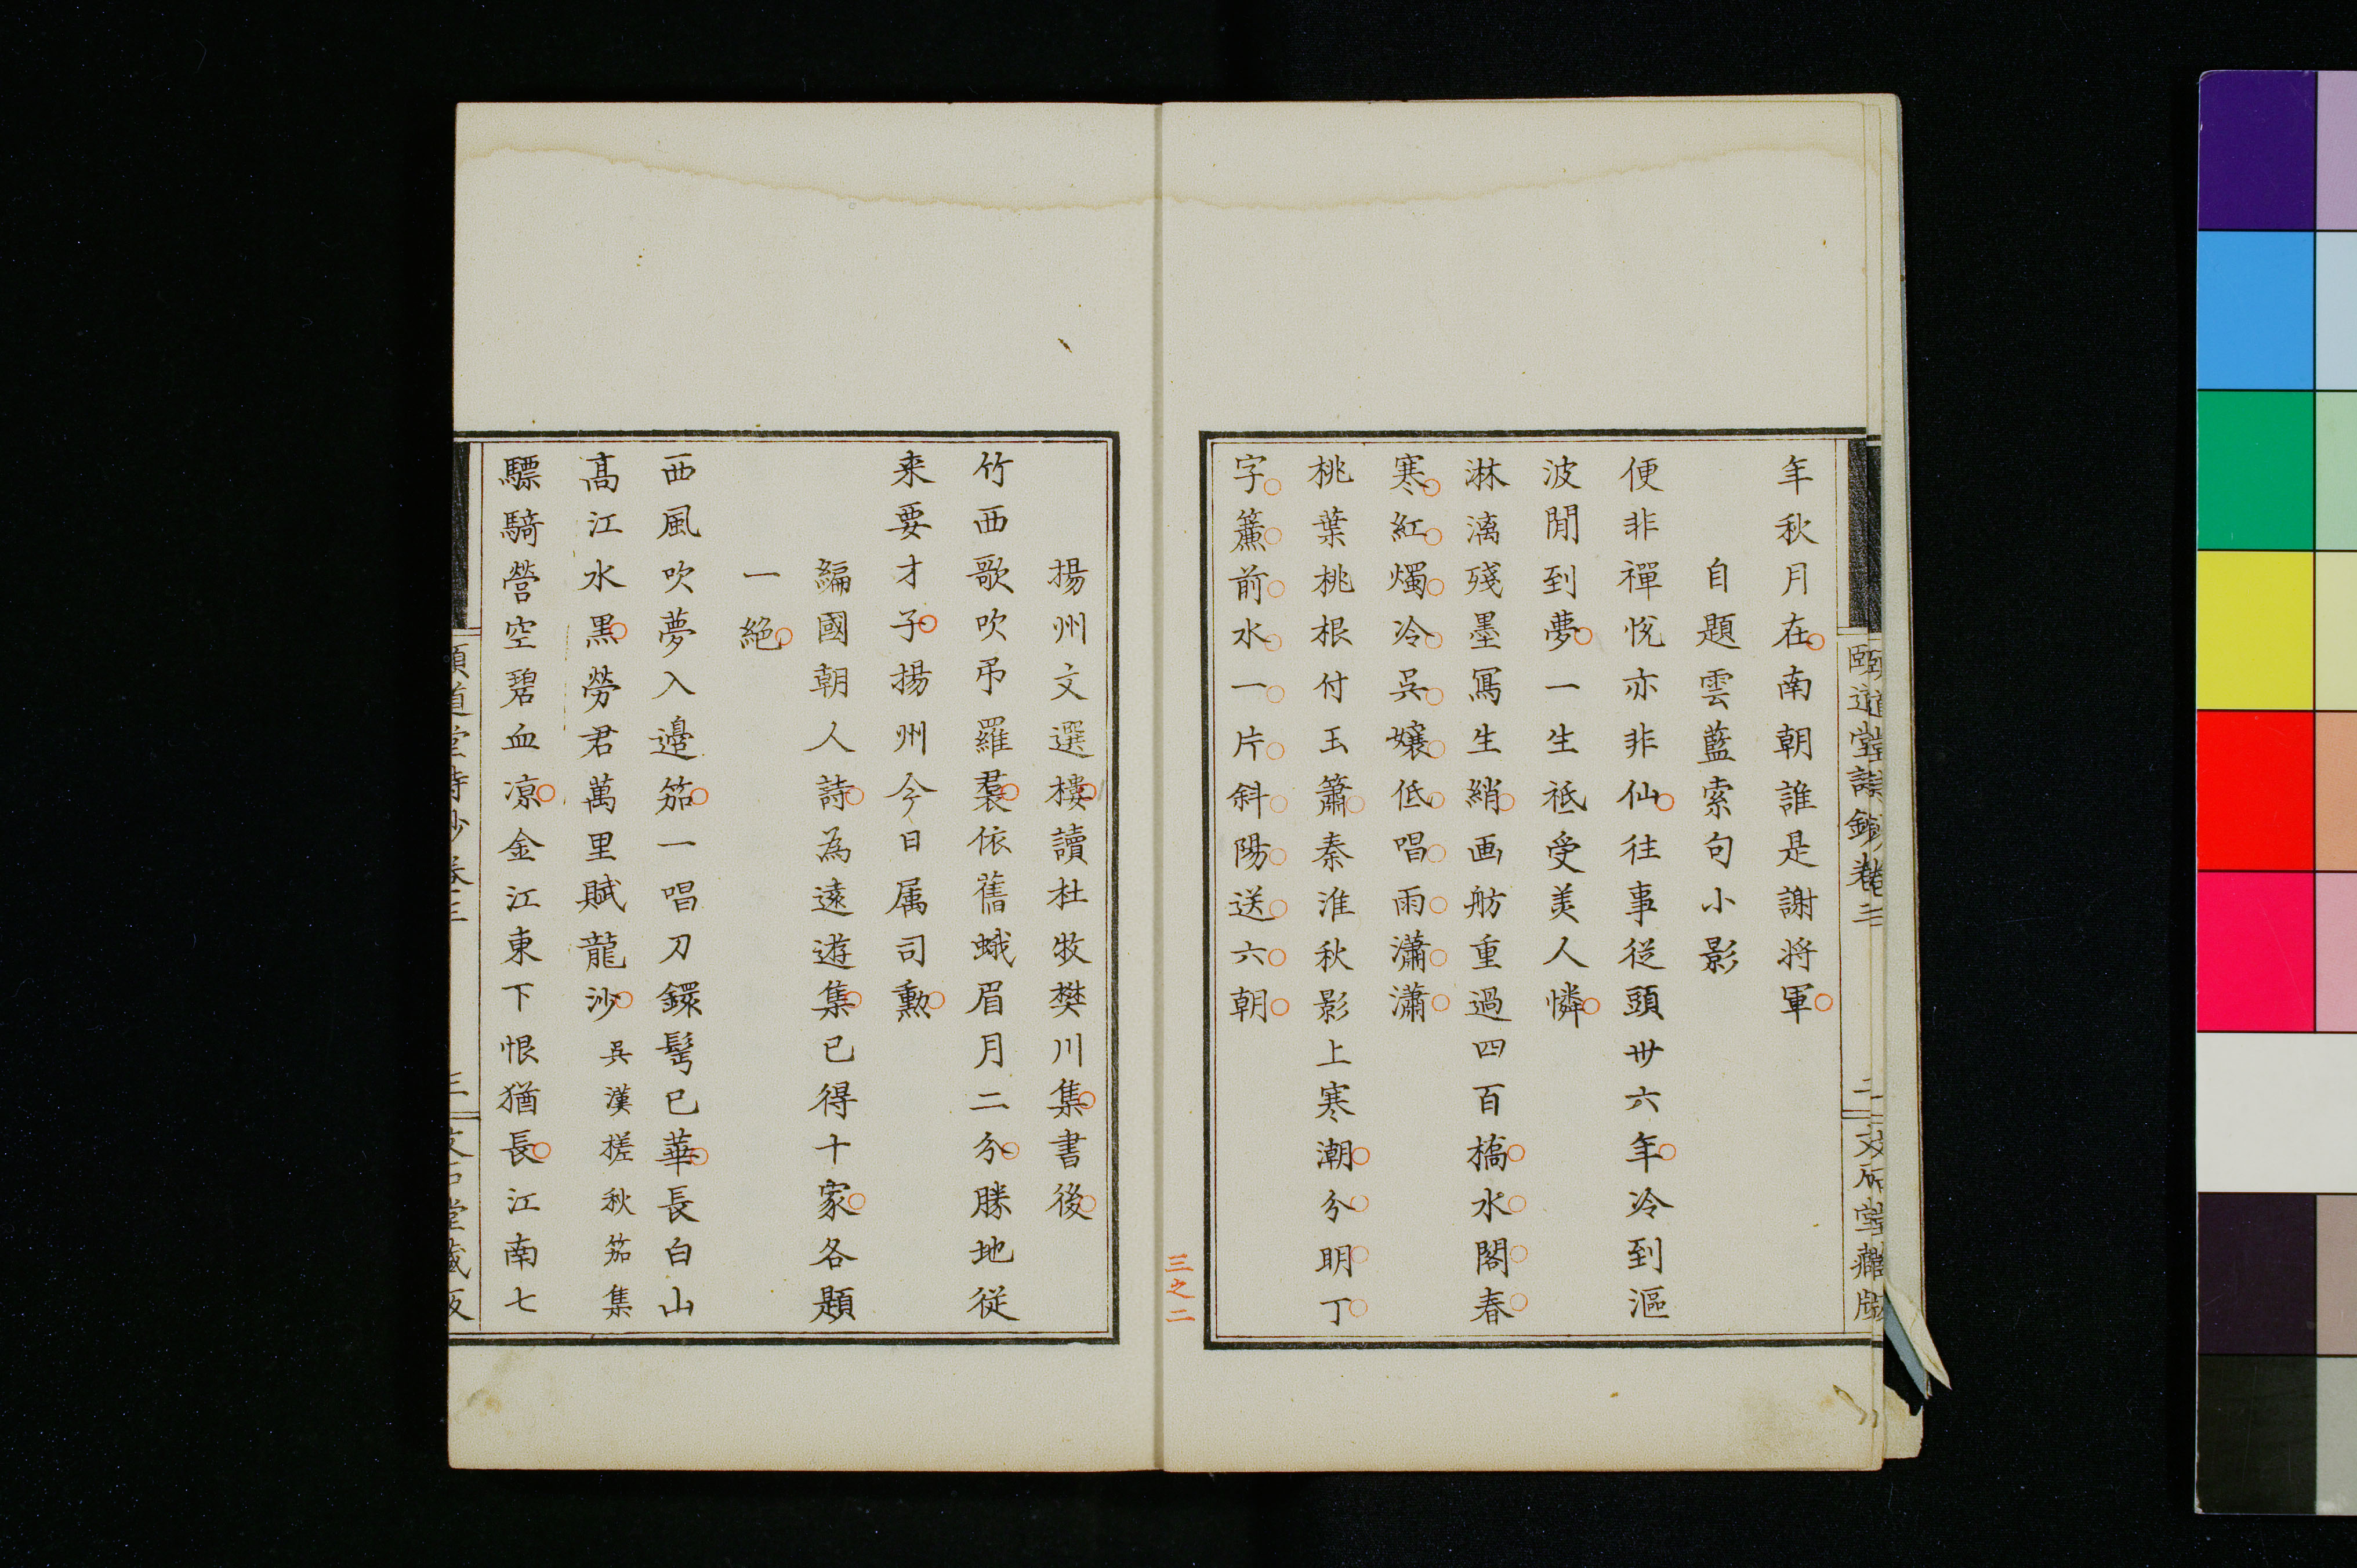 年秋月在南朝誰是謝将軍
自題雲藍索句小影
便非禪悅亦非仙往事従頭丗六年冷到漚
波閒到夢一生祇受美人憐
淋漓殘墨寫生綃画舫重過四百橋水閣春
寒紅燭冷吳孃低唱雨瀟瀟
桃葉桃根付玉簫秦淮秋影上寒潮分明丁
字簾前水一片斜陽送六朝
三之二
揚州文選樓讀杜牧樊川集書後
竹西歌吹弔羅裠依舊蛾眉月二分勝地従
来要才子揚州今日属司勲
編國朝人詩為遠遊集已得十家各題
一絕
西風吹夢入邊笳一唱刀鐶髩已華長白山
高江水黒勞君萬里賦龍沙 吳漢槎秋笳集
驃騎營空碧血凉金江東下恨猶長江南七